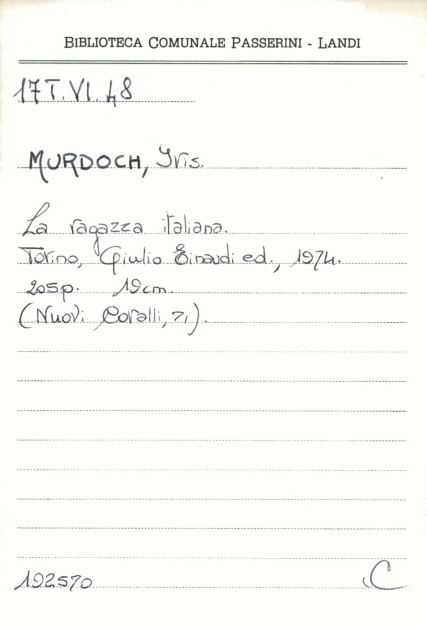 BIBLIOTECA COMUNALE PASSERINI - LANDI
17 T.VI.48
MURDOCH, Iris.
La ragazza italiana.
Torino, Giulio Einaudi ed., 1974.
205p. 19cm.
(Nuovi Coralli, 71).
192570 C